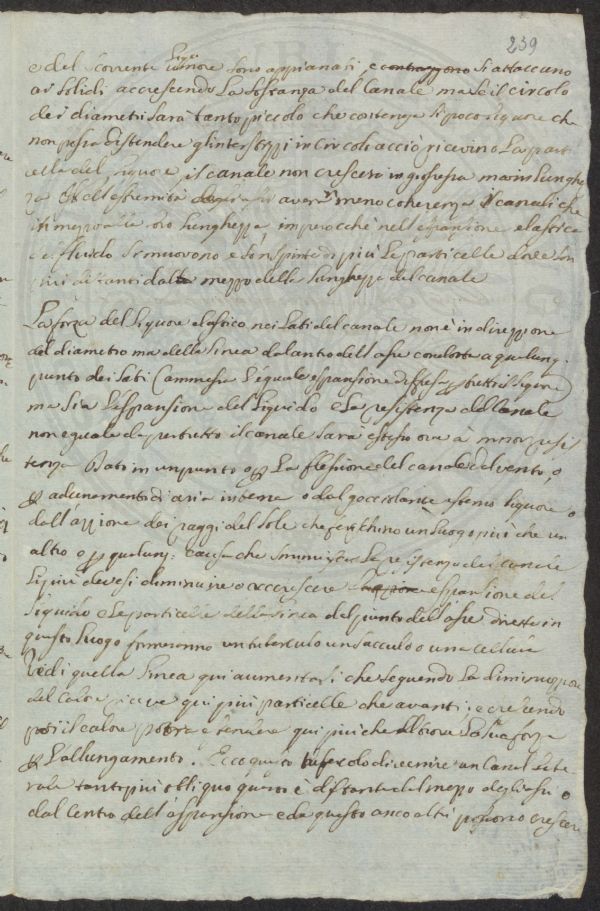 239
e del scorrente umore sono appianati, e si attaccano
ai solidi accrescendo la sostanza del Canale ma se il circolo
dei diametri sarà tanto piccolo che contenga sì poco liquore che
non possa distendere gl'interstizzi in circolo acciò ricevino la part
icella del liquore, il canale non crescerà in grossezza ma in lunghe
za all'estremità avarà meno coherenza il canale che
in mezzo alla loro lunghezza imperocchè nell'espansione elastica
il fluido si muovono e son spinte di più le particelle
dal mezzo della lunghezza del canale
La forza del liquore elastico nei lati del canale non è in direzzione
del diametro ma della linea dal canto dell'asse condotta a qualunq.
punto dei lati Cammesia l'eguale espansione diffusa p tutto il liquore
ma sia l'espansione del liquido e la resistenza del Canale
non eguale da pertutto il canale sarà esteso ove à minor resi
tenza. Dato in un punto o p la flessione del canale dal vento, o
p adunamento di aria interna o dal gocciolante esterno liquore o
dall'azzione dei raggi del Sole che ferischino un luogo più che un
altro o p qualunq: causa che sminuisca la resistenza dei canali
lì più devesi diminuire o accrescere espansione del
liquido e le particelle della linea del punto dell'asse diretto in
questo luogo formeranno un tubercolo un sacculo o una cellula
Vedi quella linea qui aumentarsi che seguendo la diminuzzione
del calore riceve qui più particelle che avanti; e crescendo
poi il calore potrà estendere qui più che altrove la sua forza
p l'allungamento. Ecco questo divenire un Canal late
rale tanto più obliquo quanto è distante dal mezzo degli assi o
dal Centro dell'espansione e da questo anco altri possono crescere